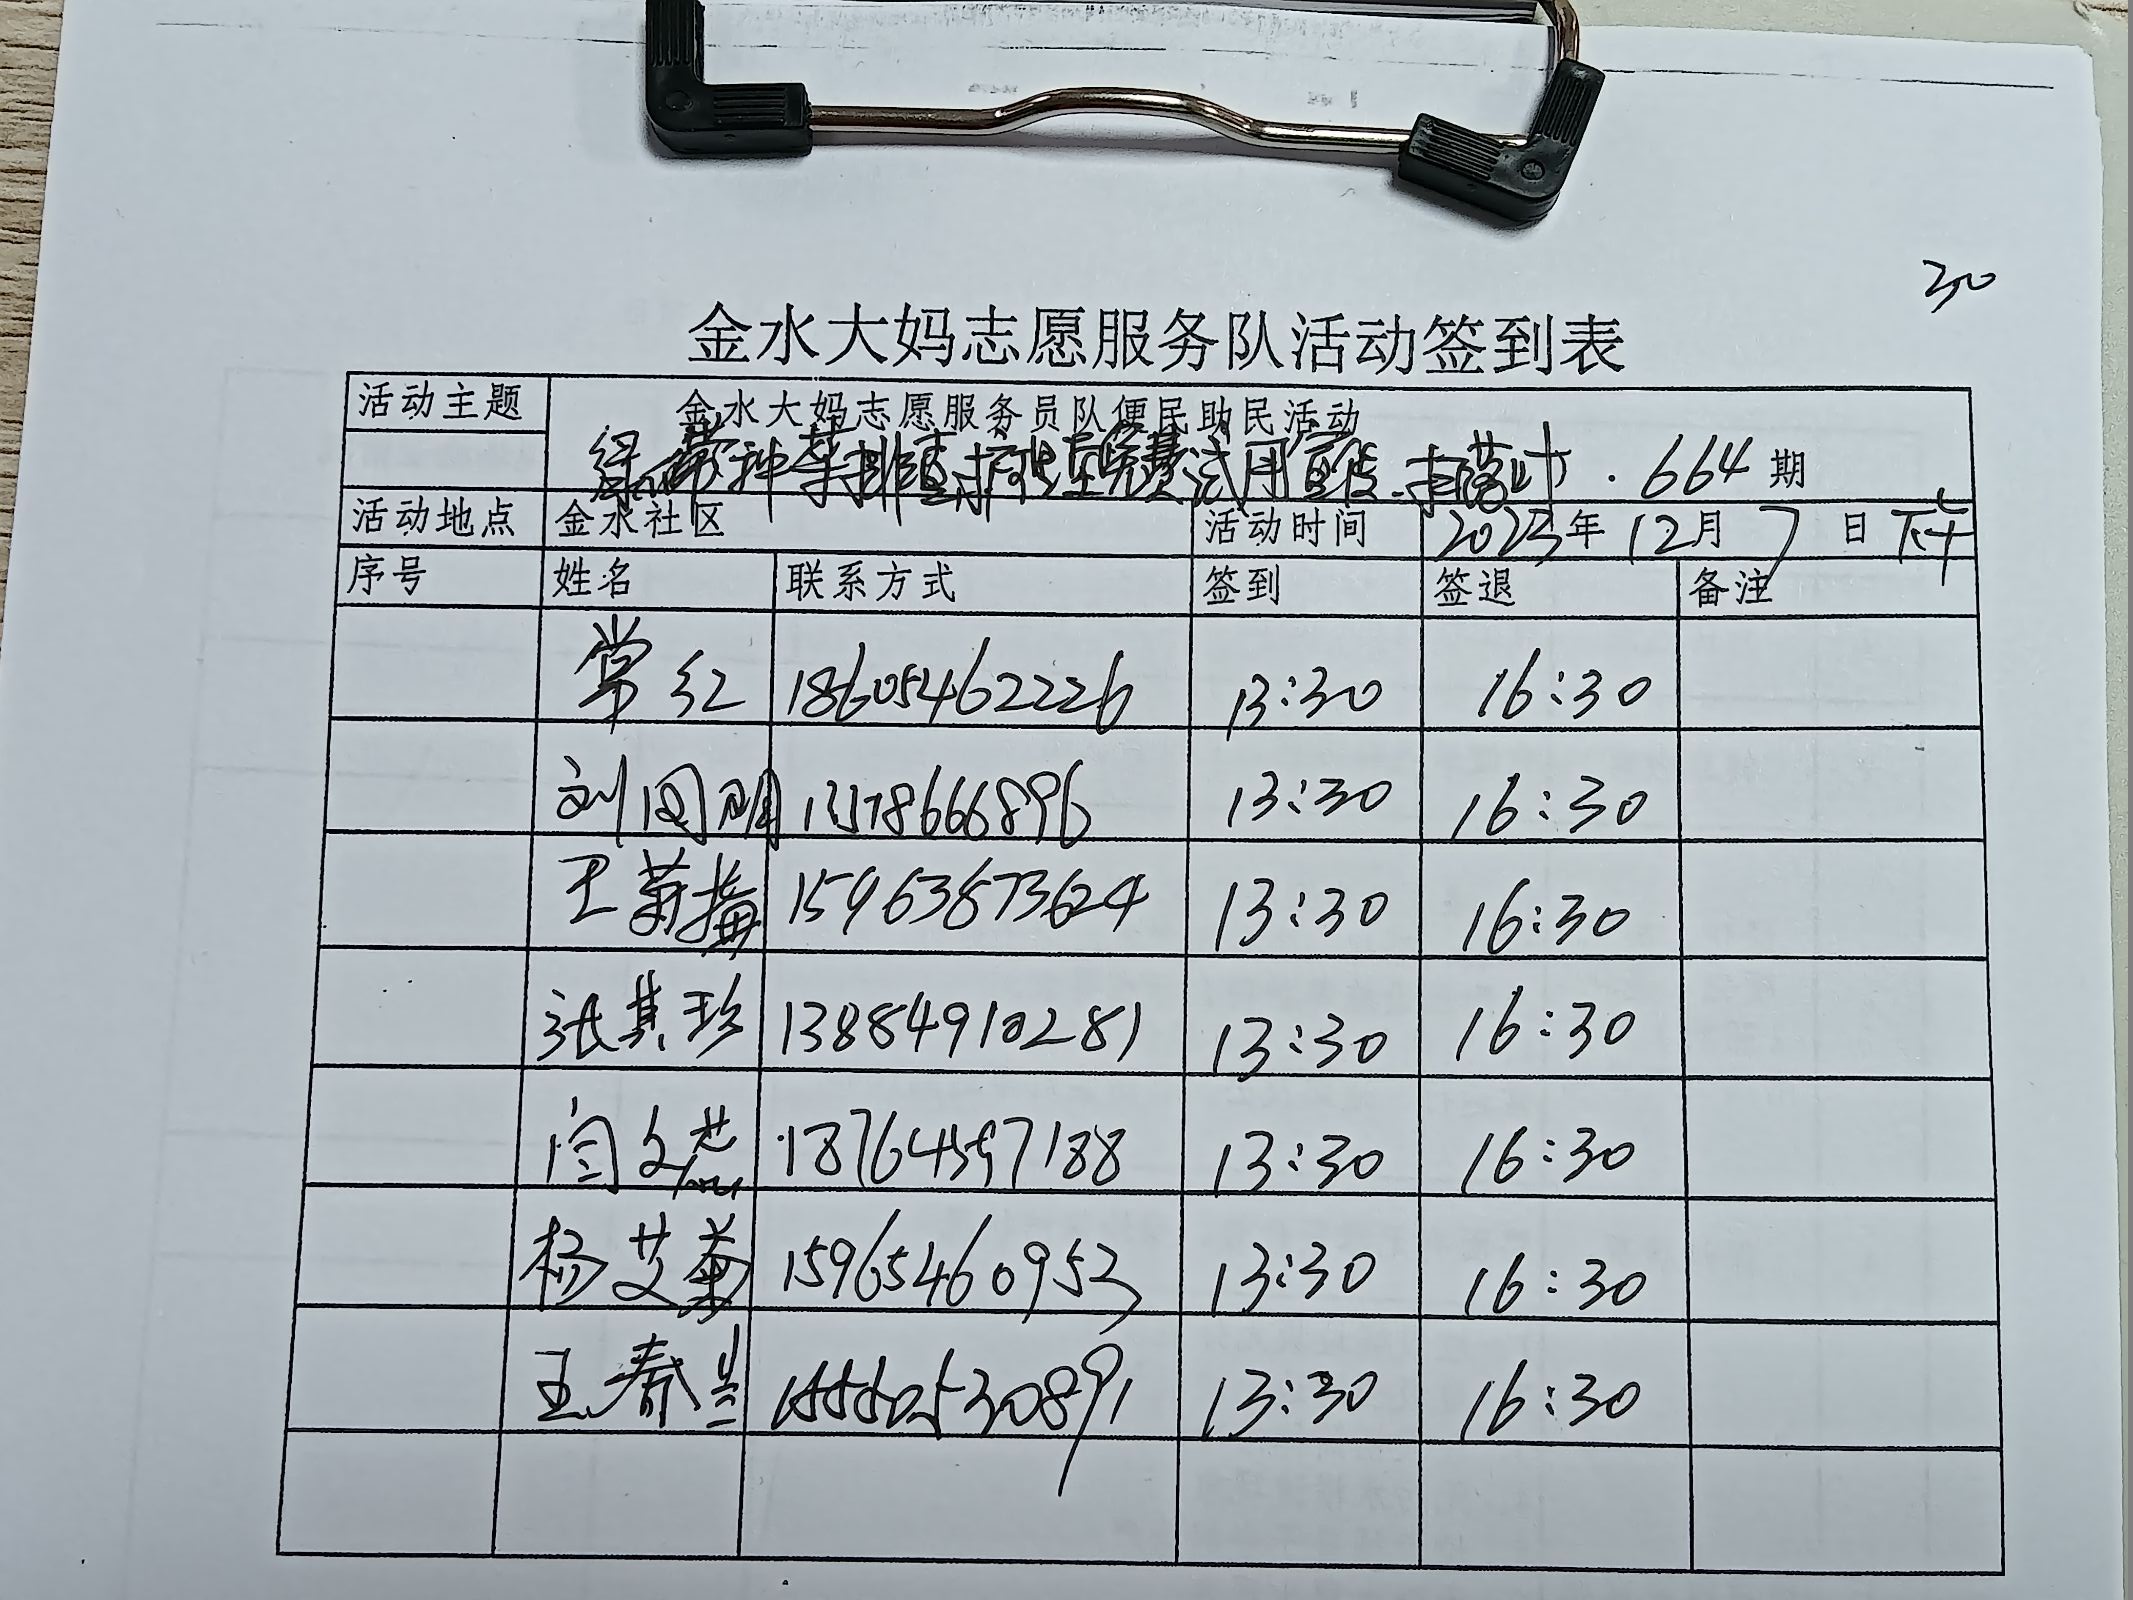 30
金水大妈志愿服务队活动签到表
活动主题 金水大妈志愿服务员队便民助民活动
绿化带种菜排查 免费试用宣传 扫落叶 . 664期
活动地点 金水社区 活动时间 2023年12月7日下午
序号 姓名 联系方式 签到 签退 备注
常红 18605462226 13:30 16:30
刘国明 13:30 16:30
王菊梅 15963873624 13:30 16:30
张其珍 13884910281 13:30 16:30
闫文 18764597188 13:30 16:30
杨艾菊 15965460953 13:30 16:30
王春兰 13:30 16:30